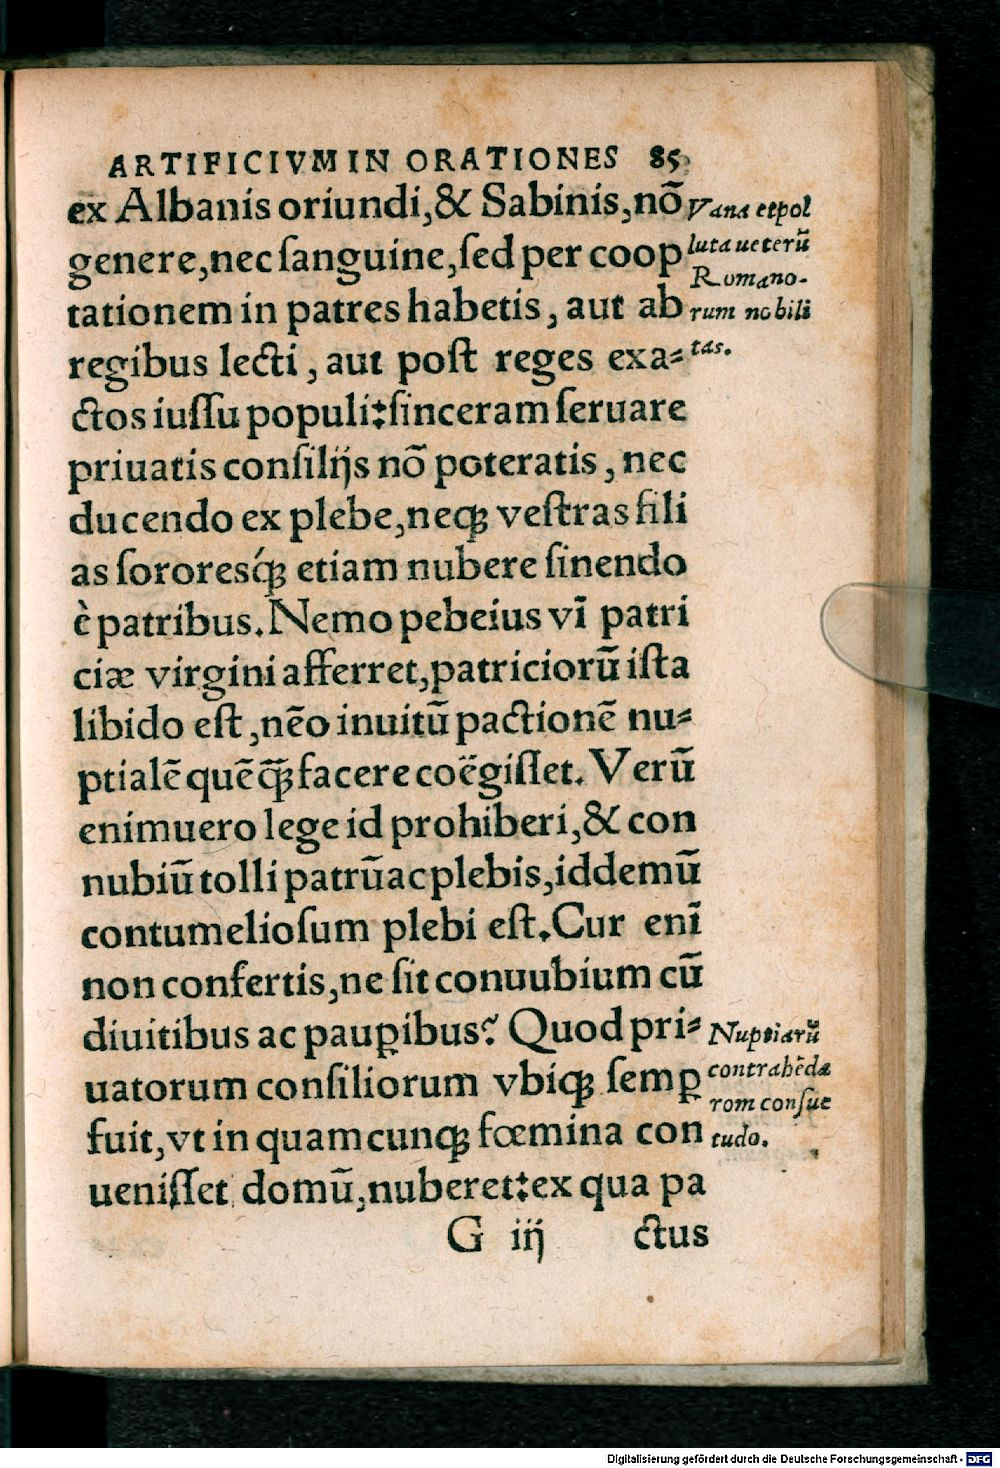 ARTIFICIVM IN ORATIONES 85
ex Albanis oriundi,& Sabinis,nō
genere,nec ſanguine,ſed per coop
tationem in patres habetis, aut ab
regibus lecti, aut poſt reges exa⸗
ctos iuſſu populi:ſinceram ſeruare
priuatis conſilijs nō poteratis, nec
ducendo ex plebe,neqꝫ veſtras fili
as ſororesq́ꝫ etiam nubere ſinendo
è patribus. Nemo pebeius vī patri
ciæ virgini afferret,patriciorū iſta
libido eſt, nēo inuitū pactionē nu⸗
ptialē quēq̄ꝫ facere coëgiſſet. Verū
enimuero lege id prohiberi,& con
nubiū tolli patrū ac plebis,id demū
contumelioſum plebi eſt. Cur enī
non confertis,ne ſit conuubium cū
diuitibus ac pauꝑibus? Quod pri⸗
uatorum conſiliorum vbiqꝫ ſemꝑ
fuit,vt in quamcunqꝫ fœmina con
ueniſſet domū,nuberet:ex qua pa
G iij ctus
Vana et pol
luta ueterū
Romano-
rum nobili
tas.
Nuptiarū
contrahēda
rom conſue
tudo.
Digitalisierung gefördert durch die Deutsche Forschungsgemeinschaft - DFG